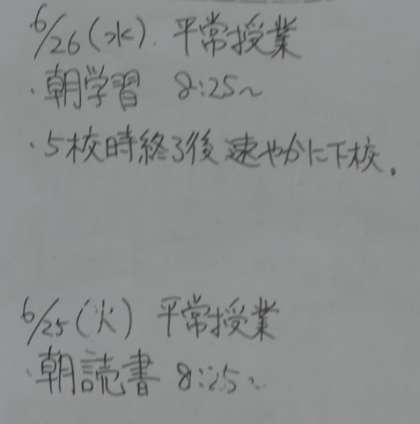 6/26(水). 平常授業
・朝学習 8:25~
・5校時終了後速やかに下校。
6/25(火) 平常授業
・朝読書 8:25~